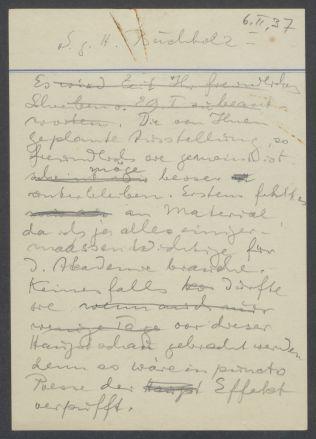 6.II.37
S. g. H. Buchholz
Es wird Zeit Ihr freundliches
Schreiben v. 29. I zu beant-
worten. Die von Ihnen
geplante Ausstellung, so
freundlich sie gemeint ist
möge
besser
unterbleiben. Erstens fehlt es
an Material,
da ich ja alles einiger-
maassen Wichtige für
d. Akademie brauche.
Keinesfalls dürfte
sie wenn auch nur
wenige Tage vor dieser
Hauptschau gebracht werden
denn so wäre in puncto
Presse der Effekt
verpufft.